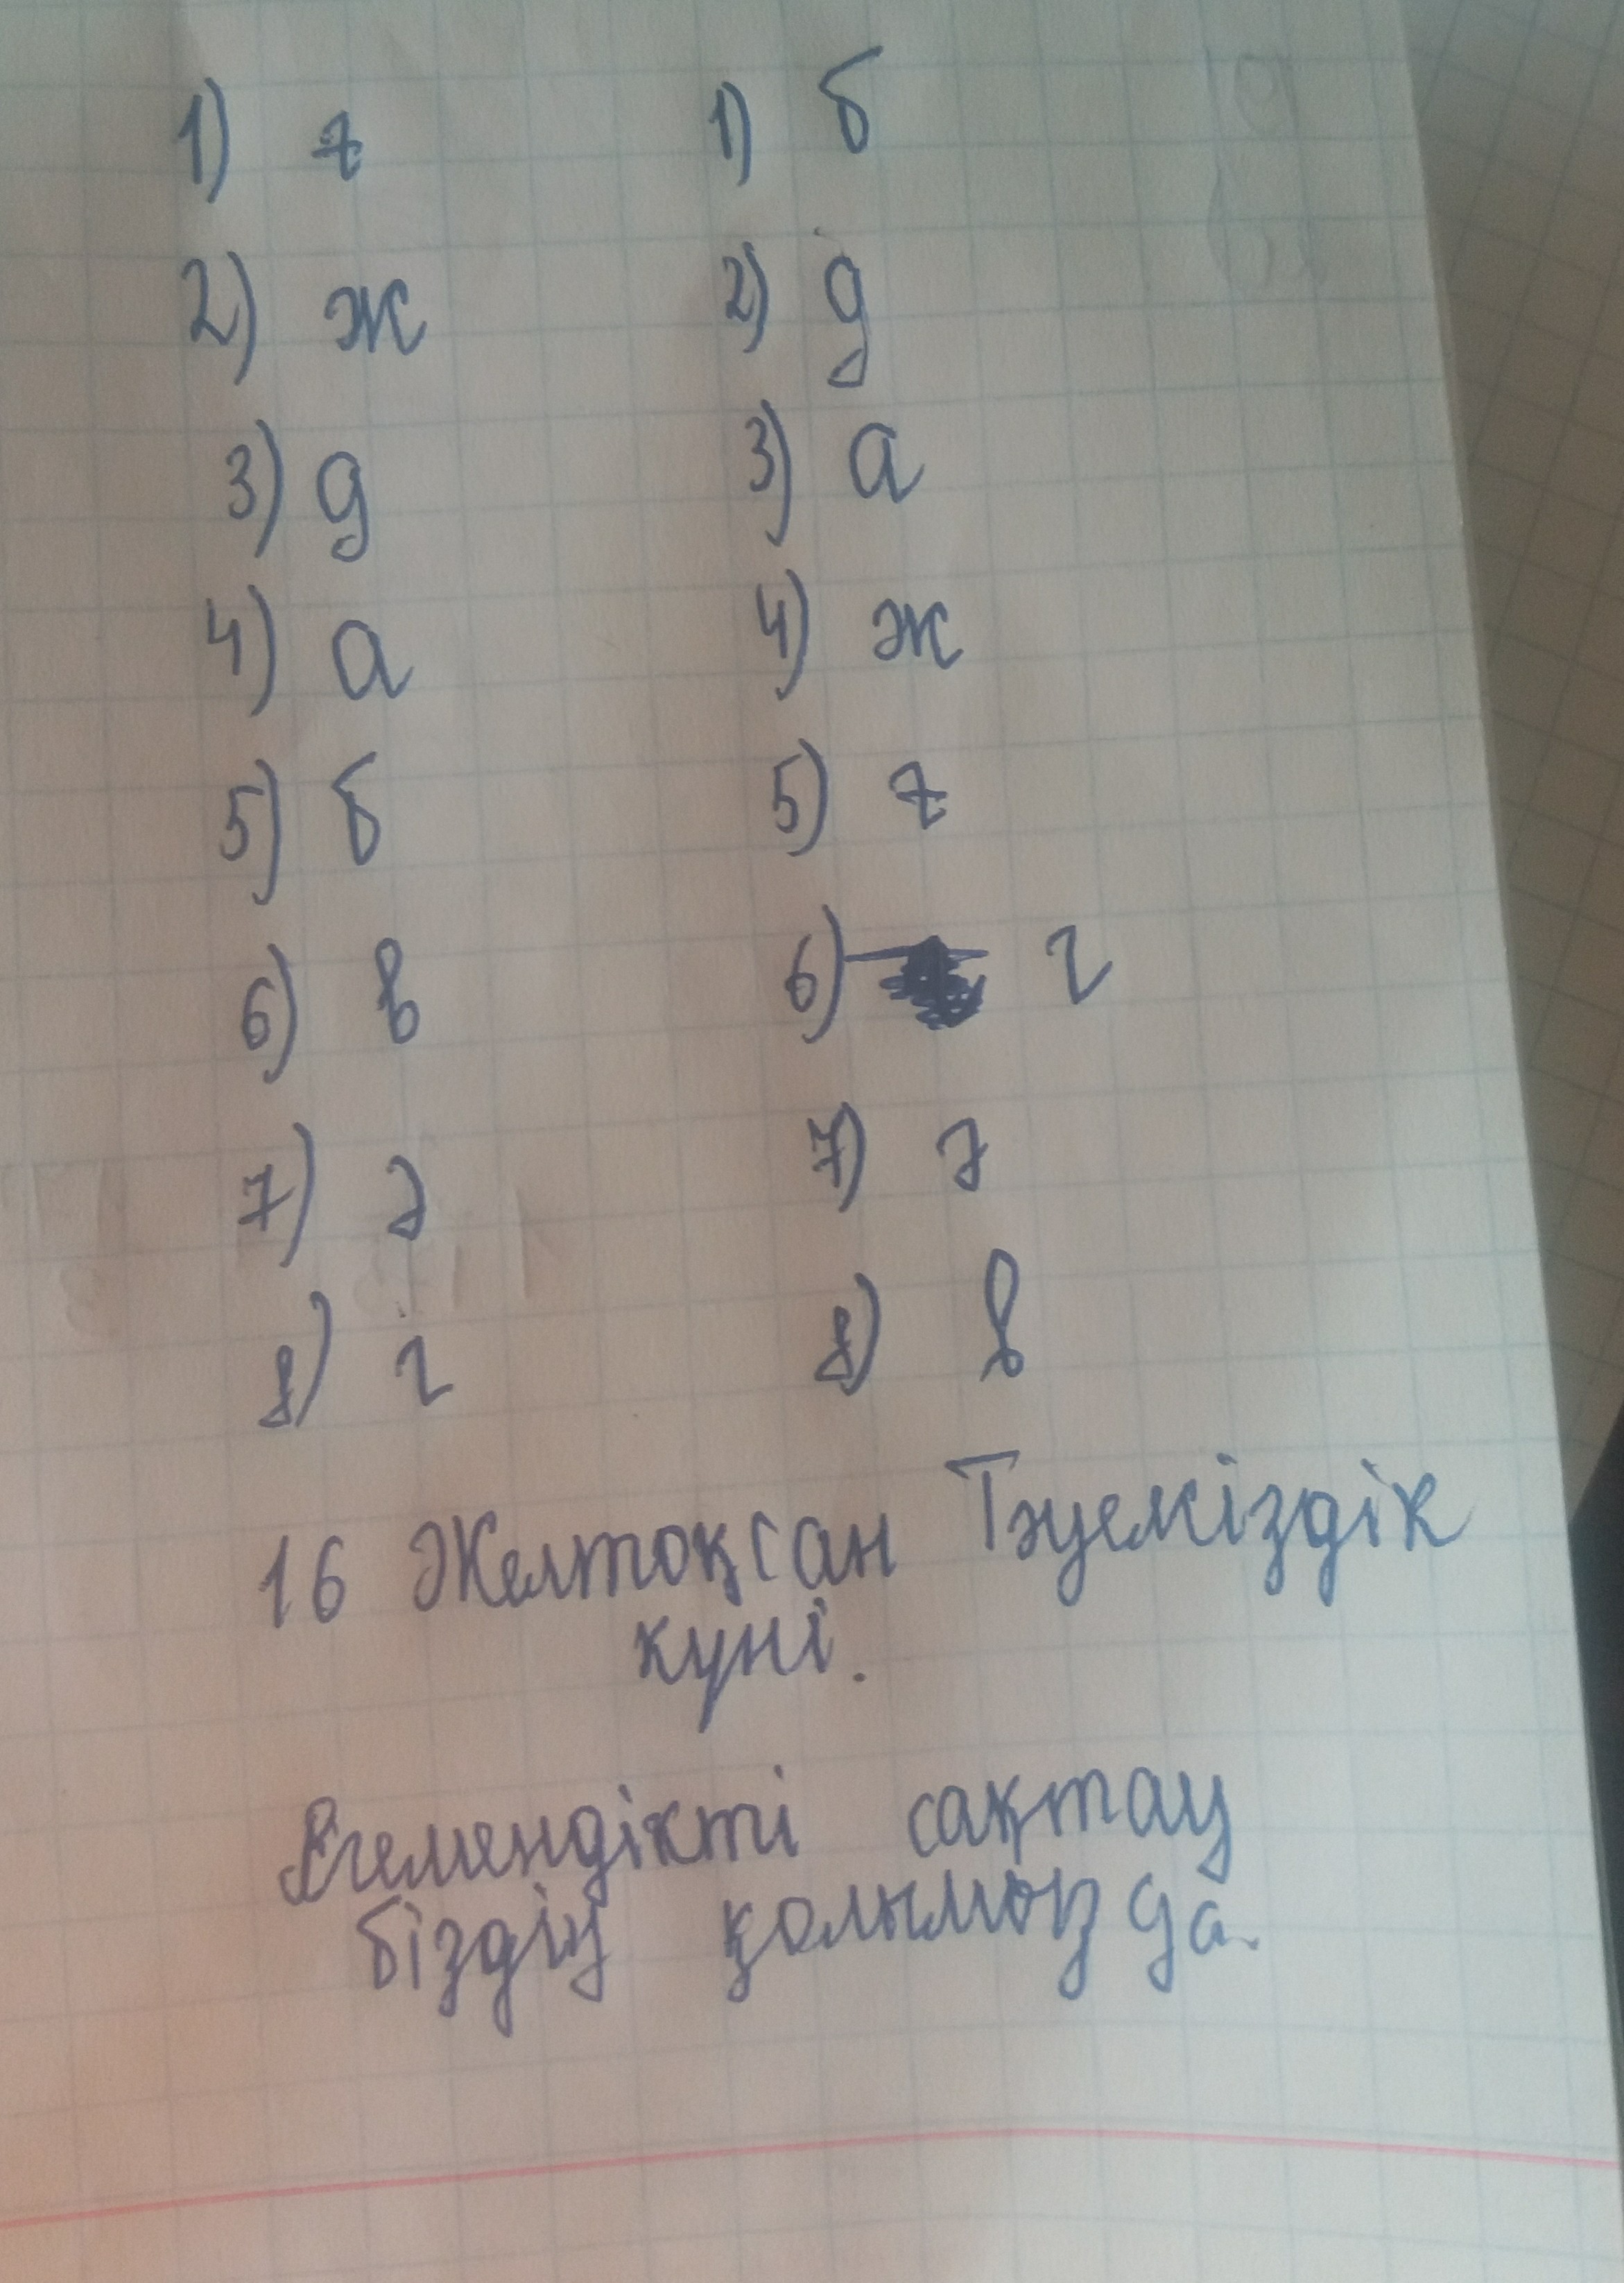 1) ғ 1) б
2) ж 2) д
3) д 3) а
4) а 4) ж
5) б 5) ғ
6) в 6) г
7) ә 7) ә
8) г 8) в
16 Желтоқсан Тәуелсіздік
күні.
Егемендікті сақтау
біздің қолымызда.